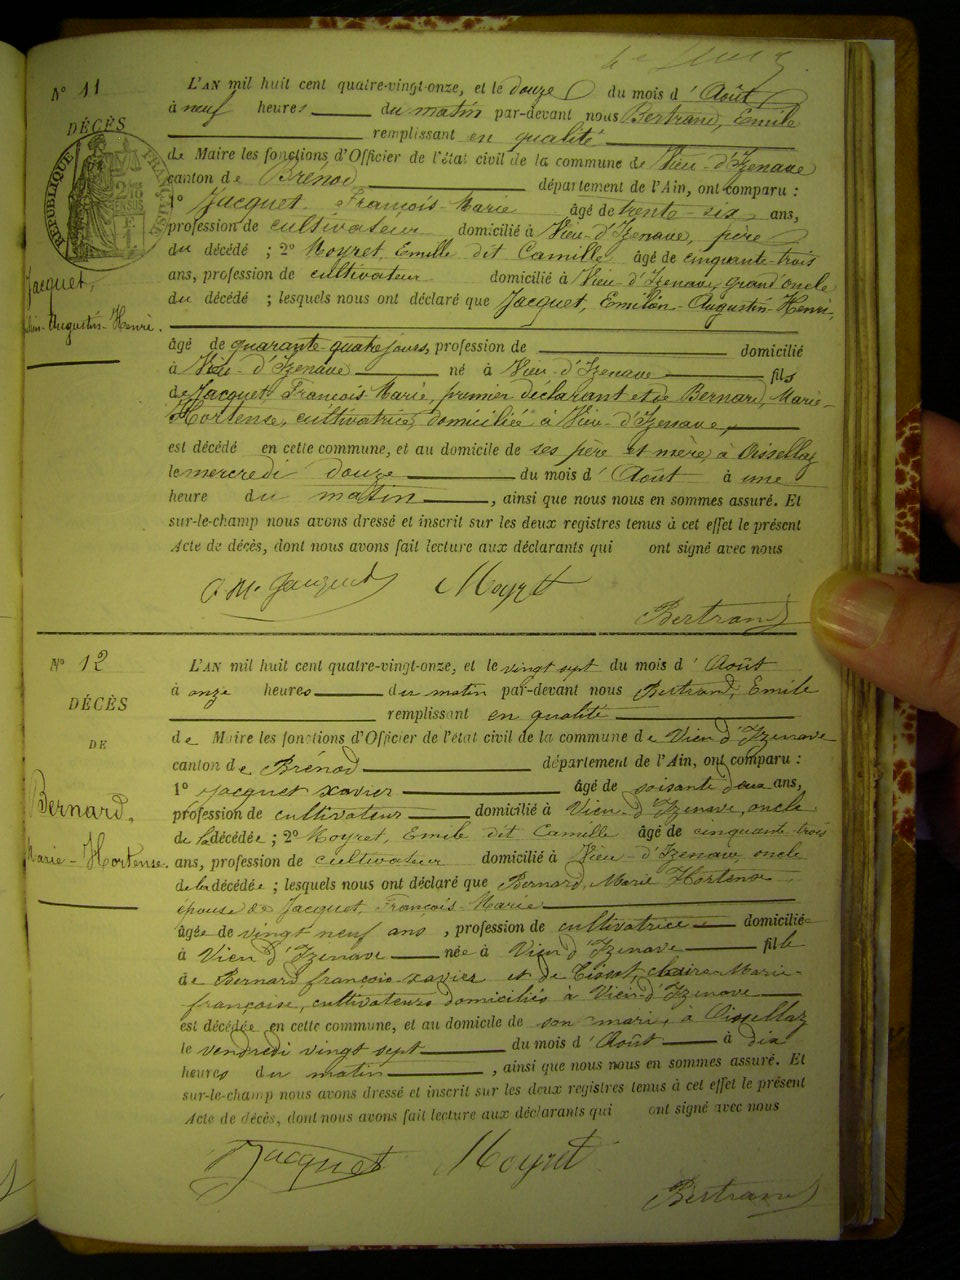 N° 11
DÉCÈS
RÉPUBLIQUE FRANÇAISE
Jacquet,
Augustin-Henri.
L'AN mil huit cent quatre-vingt-onze, et le douze du mois d'Août
à neuf heures du matin par-devant nous Bertrand, Emile
remplissant en qualité
de Maire les fonctions d'Officier de l'état civil de la commune de Vieu-d'Izenave
canton de Brénod département de l'Ain, ont comparu :
1° Jacquet François-Marie âgé de trente-six ans,
profession de cultivateur domicilié à Vieu-d'Izenave, père
du décédé ; 2° Moyret, Emile dit Camille âgé de cinquante-trois
ans, profession de cultivateur domicilié à Vieu-d'Izenave, grand'oncle
du décédé ; lesquels nous ont déclaré que Jacquet, Emilien-Augustin-Henri,
âgé de quarante-quatre jours, profession de domicilié
à Vieu-d'Izenave né à Vieu-d'Izenave fils
de Jacquet François-Marie, premier déclarant et de Bernard, Marie-
Hortense, cultivatrice, domiciliée à Vieu-d'Izenave,
est décédé en cette commune, et au domicile de ses père et mère, à Oissellaz
le mercredi douze du mois d'Août à une
heure du matin, ainsi que nous nous en sommes assuré. Et
sur-le-champ nous avons dressé et inscrit sur les deux registres tenus à cet effet le présent
Acte de décès, dont nous avons fait lecture aux déclarants qui ont signé avec nous
Jacquet Moyret
Bertrand
N° 12
DÉCÈS
DE
Bernard,
Marie-Hortense.
L'AN mil huit cent quatre-vingt-onze, et le vingt sept du mois d'Août
à onze heures du matin par-devant nous Bertrand, Emile
remplissant en qualité
de Maire les fonctions d'Officier de l'état civil de la commune de Vieu d'Izenave
canton de Brénod département de l'Ain, ont comparu :
1° Jacquet xavier âgé de soisante deux ans,
profession de cultivateur domicilié à Vieu-d'Izenave, oncle
de la décédée ; 2° Moyret, Emile dit Camille âgé de cinquante-trois
ans, profession de cultivateur domicilié à Vieu-d'Izenave, oncle
de la décédée ; lesquels nous ont déclaré que Bernard, Marie Hortense
épouse de Jacquet, François-Marie
âgée de vingt neuf ans, profession de cultivatrice domiciliée
à Vieu d'Izenave née à Vieu d'Izenave fille
de Bernard françois-xavier et de claire-Marie-
françoise, cultivateurs domiciliés à Vieu-d'Izenave
est décédée en cette commune, et au domicile de son mari, à Oissellaz
le vendredi vingt sept du mois d'Août à dix
heures du matin, ainsi que nous nous en sommes assuré. Et
sur-le-champ nous avons dressé et inscrit sur les deux registres tenus à cet effet le présent
Acte de décès, dont nous avons fait lecture aux déclarants qui ont signé avec nous
Jacquet Moyret
Bertrand